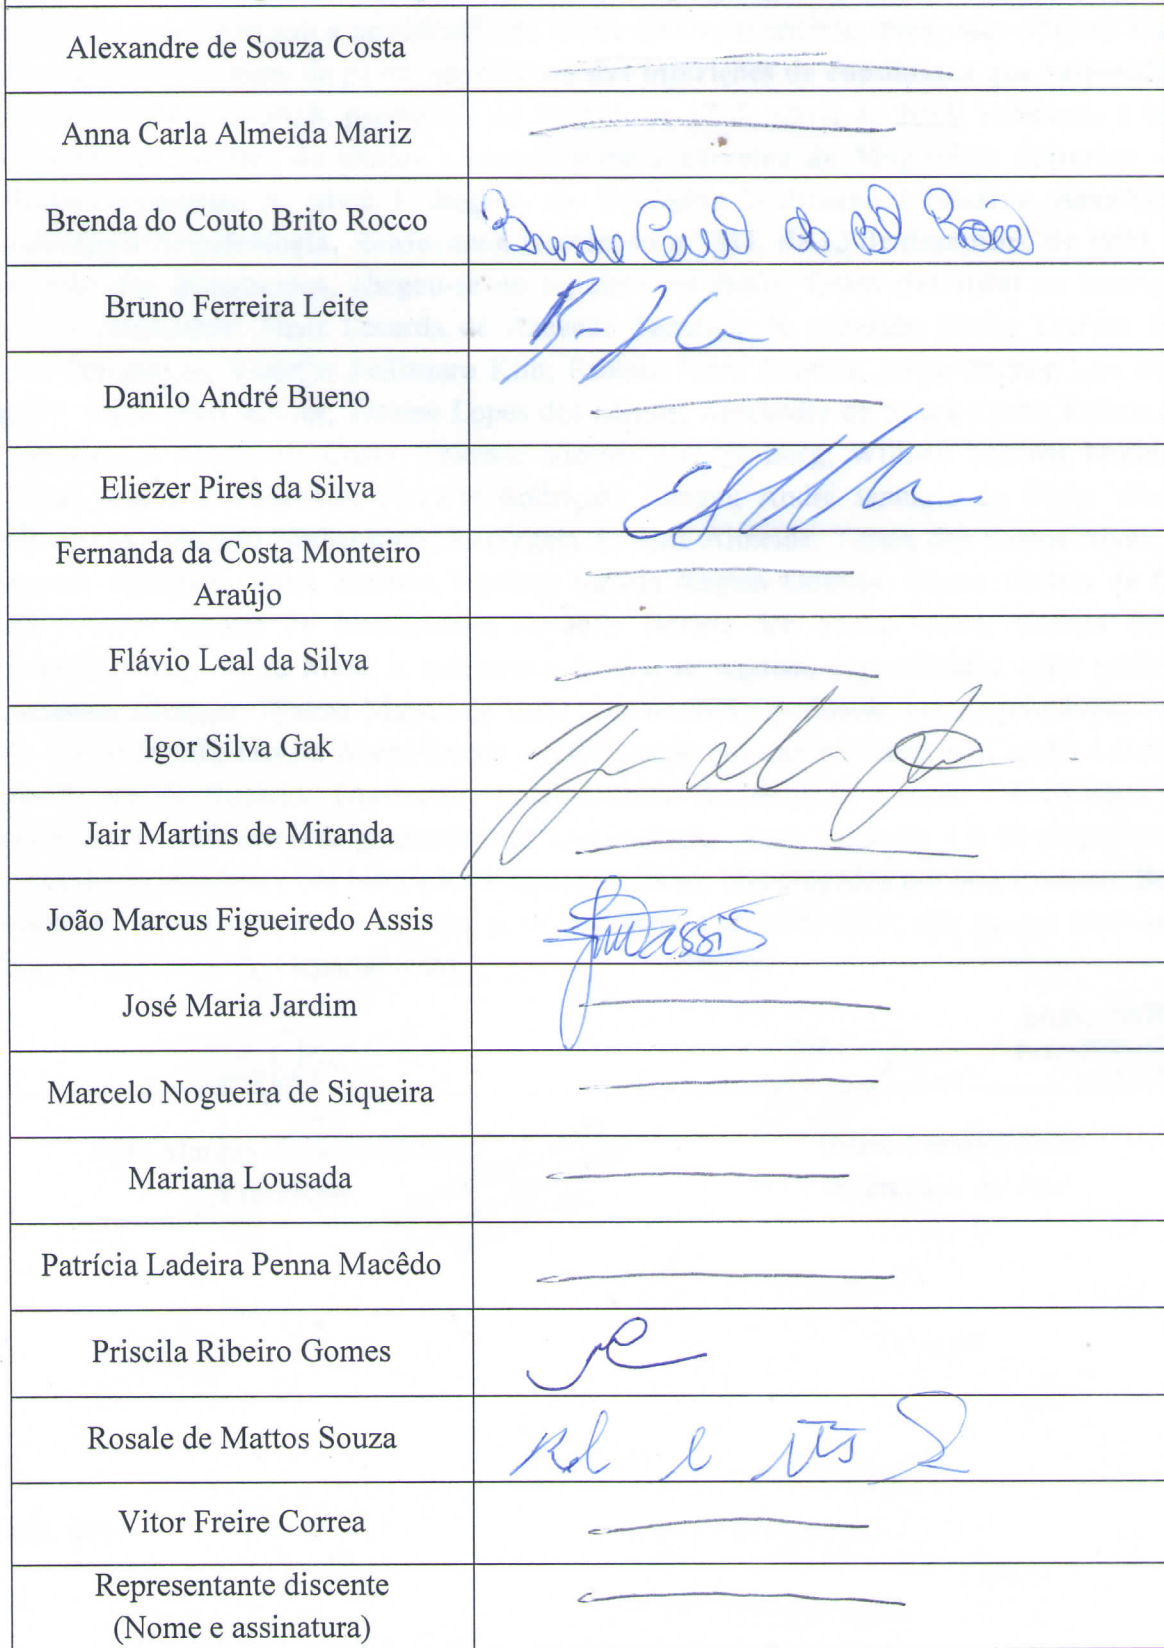 Alexandre de Souza Costa
Anna Carla Almeida Mariz
Brenda do Couto Brito Rocco
Bruno Ferreira Leite
Danilo André Bueno
Eliezer Pires da Silva
Fernanda da Costa Monteiro
Araújo
Flávio Leal da Silva
Igor Silva Gak
Jair Martins de Miranda
João Marcus Figueiredo Assis
Assis
José Maria Jardim
Marcelo Nogueira de Siqueira
Mariana Lousada
Patrícia Ladeira Penna Macêdo
Priscila Ribeiro Gomes
Rosale de Mattos Souza
Vitor Freire Correa
Representante discente
(Nome e assinatura)